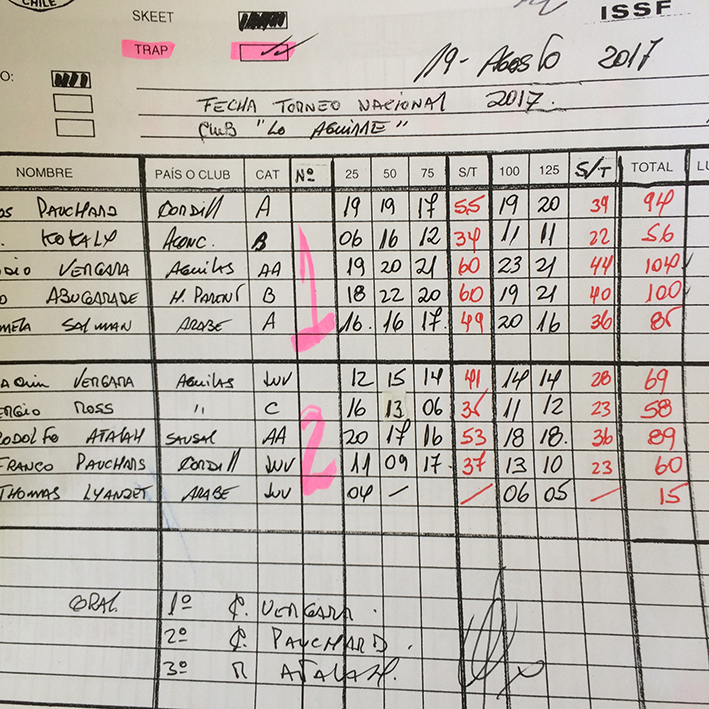 CHILE
SKEET
ISSF
TRAP
19-Agosto 2017
O:
FECHA TORNEO NACIONAL 2017.
CLUB "LO AGUIRRE"
NOMBRE PAÍS O CLUB CAT Nº 25 50 75 S/T 100 125 S/T TOTAL LU
OS PAUCHARD CORDILL A 19 19 17 55 19 20 39 94
. KOKALY ACONC. B 06 16 12 34 11 11 22 56
DIO VERGARA AGUILAS AA 19 20 21 60 23 21 44 104
O ABUGARADE H. PARENT B 18 22 20 60 19 21 40 100
MELA SALMAN ARABE A 16. 16 17. 49 20 16 36 85
1
AQUIN VERGARA AGUILAS JUV 12 15 14 41 14 14 28 69
ERGIO ROSS " C 16 13 06 35 11 12 23 58
RODOLFO ATALAH SAUSAL AA 20 17 16 53 18 18. 36 89
FRANCO PAUCHARD CORDILL JUV 11 09 17. 37 13 10 23 60
THOMAS ARABE JUV 04 — / 06 05 / 15
2
GRAL. 1º C. VERGARA.
2º C. PAUCHARD.
3º R ATALAH.